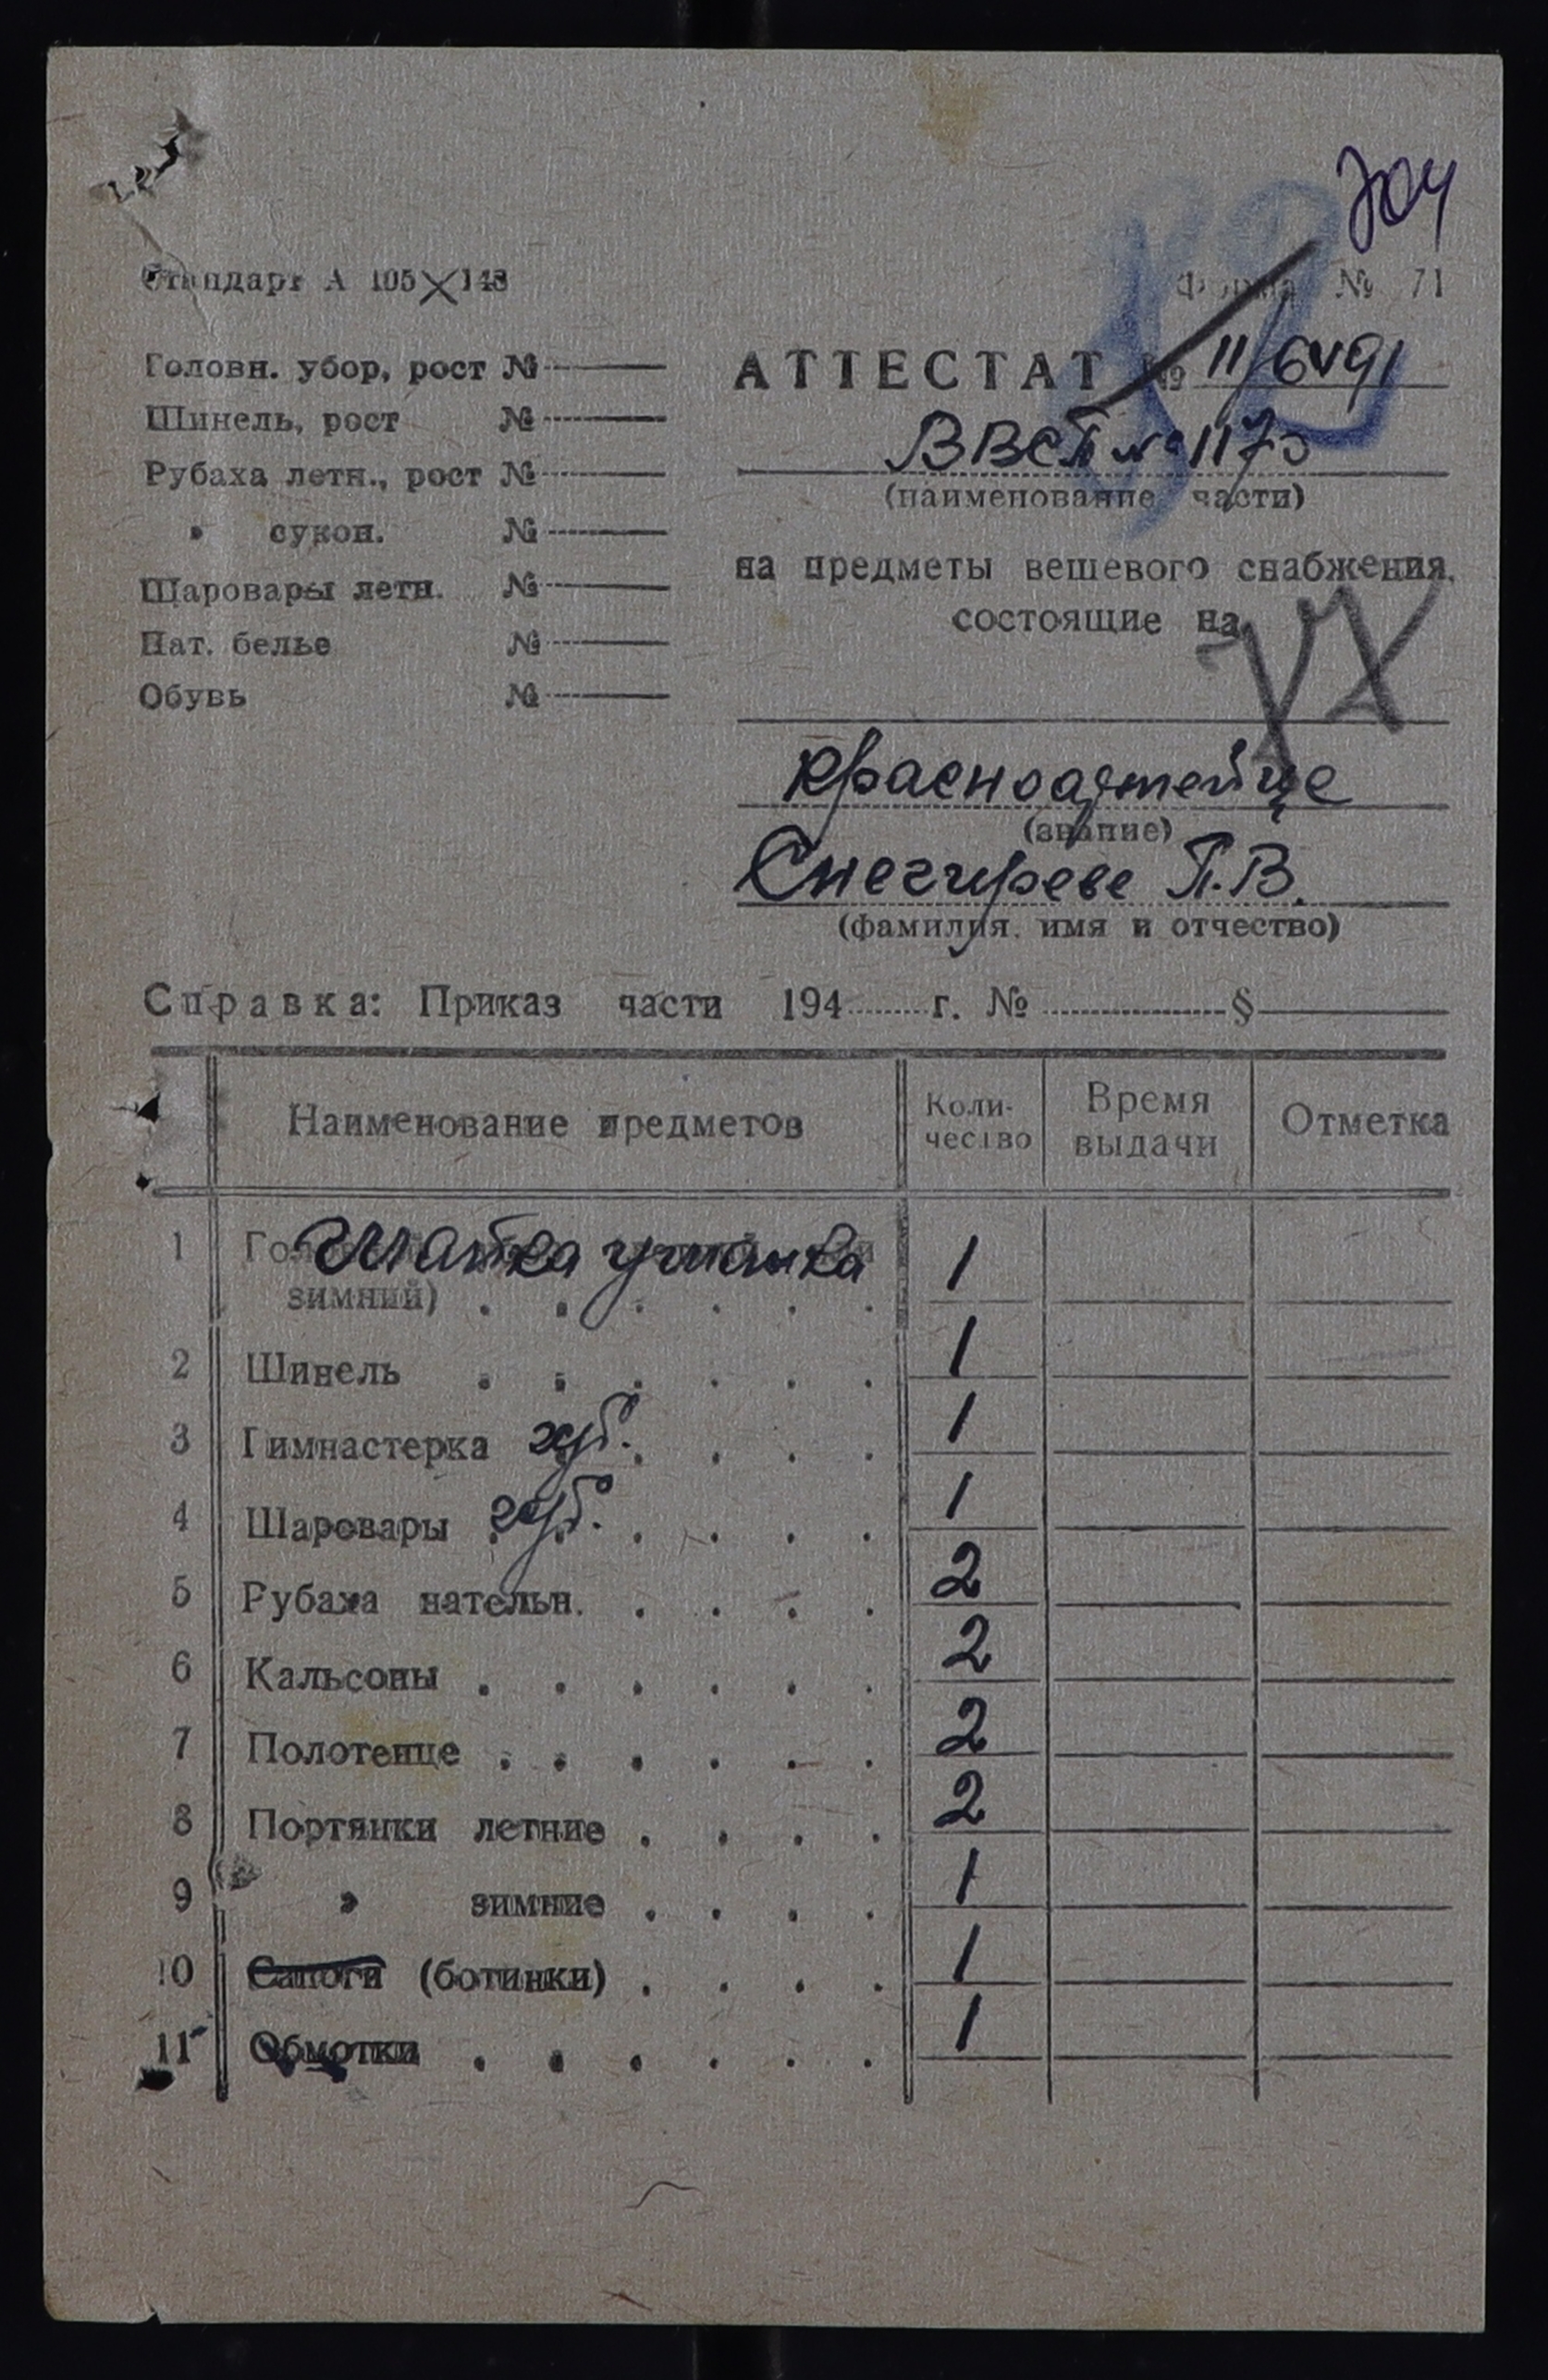 704
Стандарт А 105×148
Форма № 71
Головн. убор, рост №
Шинель, рост №
Рубаха летн., рост №
» сукон. №
Шаровары летн. №
Нат. белье №
Обувь №
АТТЕСТАТ № 11/6491
ВВСП № 1170
(наименование части)
на предметы вешевого снабжения,
состоящие на
красноармейце
(звание)
Снегиреве П.В.
(фамилия, имя и отчество)
Справка: Приказ части 194 г. № §
Наименование предметов Количество Время выдачи Отметка
1 Шапка ушанка 1
зимний)
2 Шинель 1
3 Гимнастерка х/б. 1
4 Шаровары х/б. 1
5 Рубаха нательн. 2
6 Кальсоны 2
7 Полотенце 2
8 Портянки летние 2
9 » зимние 1
10 Сапоги (ботинки) 1
11 Обмотки 1